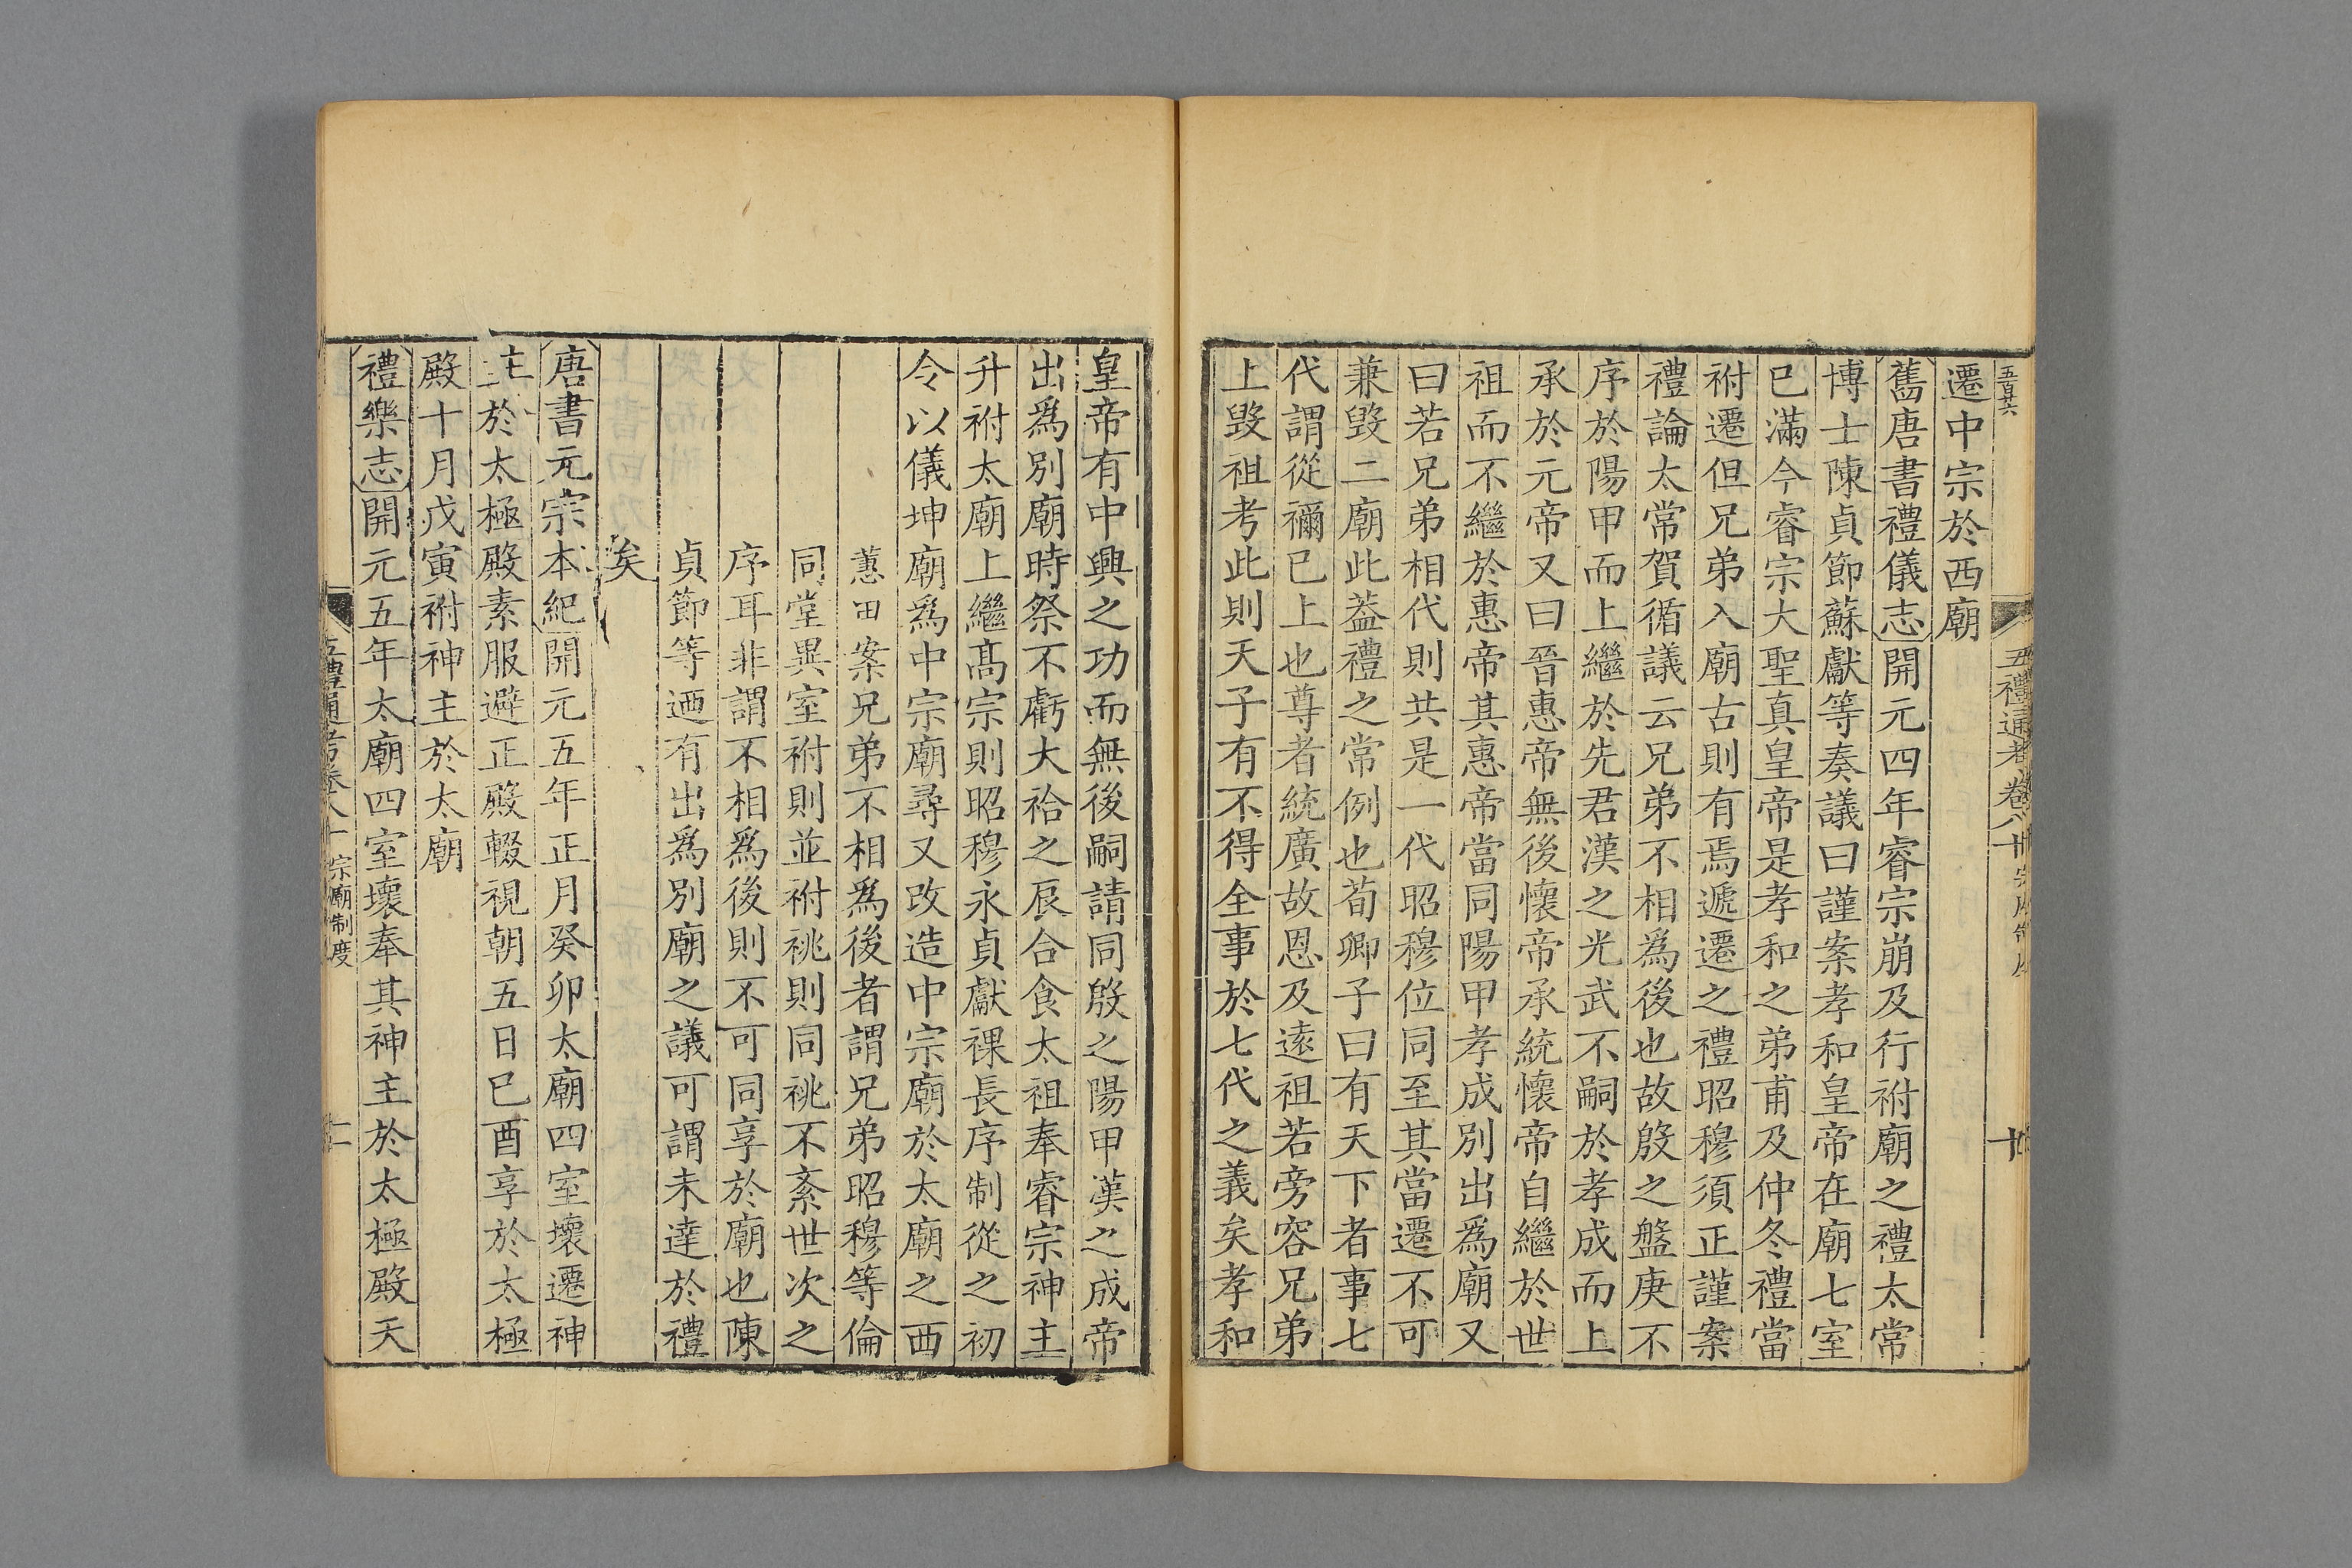 五百廿六
五禮通考卷八十
十
遷中宗於西廟
舊唐書禮儀志開元四年睿宗崩及行祔廟之禮太常
博士陳貞節蘇獻等奏議曰謹案孝和皇帝在廟七室
已滿今睿宗大聖真皇帝是孝和之弟甫及仲冬禮當
祔遷但兄弟入廟古則有焉遞遷之禮昭穆須正謹案
禮論太常賀循議云兄弟不相爲後也故殷之盤庚不
序於陽甲而上繼於先君漢之光武不嗣於孝成而上
承於元帝又曰晉惠帝無後懷帝承統懷帝自繼於世
祖而不繼於惠帝其惠帝當同陽甲孝成別出爲廟又
曰若兄弟相代則共是一代昭穆位同至其當遷不可
兼毀二廟此蓋禮之常例也荀卿子曰有天下者事七
代謂從禰已上也尊者統廣故恩及遠祖若旁容兄弟
上毀祖考此則天子有不得全事於七代之義矣孝和
皇帝有中興之功而無後嗣請同殷之陽甲漢之成帝
出爲別廟時祭不虧大祫之辰合食太祖奉睿宗神主
升祔太廟上繼髙宗則昭穆永貞獻祼長序制從之初
令以儀坤廟爲中宗廟尋又改造中宗廟於太廟之西
蕙田案兄弟不相爲後者謂兄弟昭穆等倫
同堂異室祔則並祔祧則同祧不紊世次之
序耳非謂不相爲後則不可同享於廟也陳
貞節等迺有出爲別廟之議可謂未達於禮
矣
唐書元宗本紀開元五年正月癸卯太廟四室壞遷神
主於太極殿素服避正殿輟視朝五日已酉享於太極
殿十月戊寅祔神主於太廟
禮樂志開元五年太廟四室壞奉其神主於太極殿天
五禮通考卷八十 宗廟制度